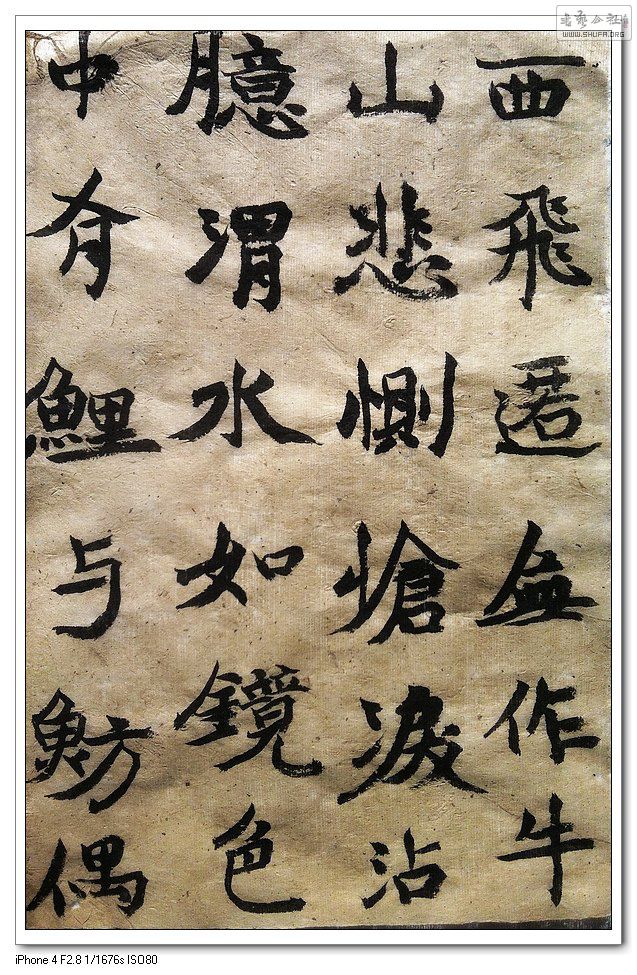 西飛匿無作牛
山悲惻愴淚沾
臆渭水如鏡色
中有鯉与魴偶
書藝公社
WWW.SHUFA.ORG
iPhone 4 F2.8 1/1676s ISO80